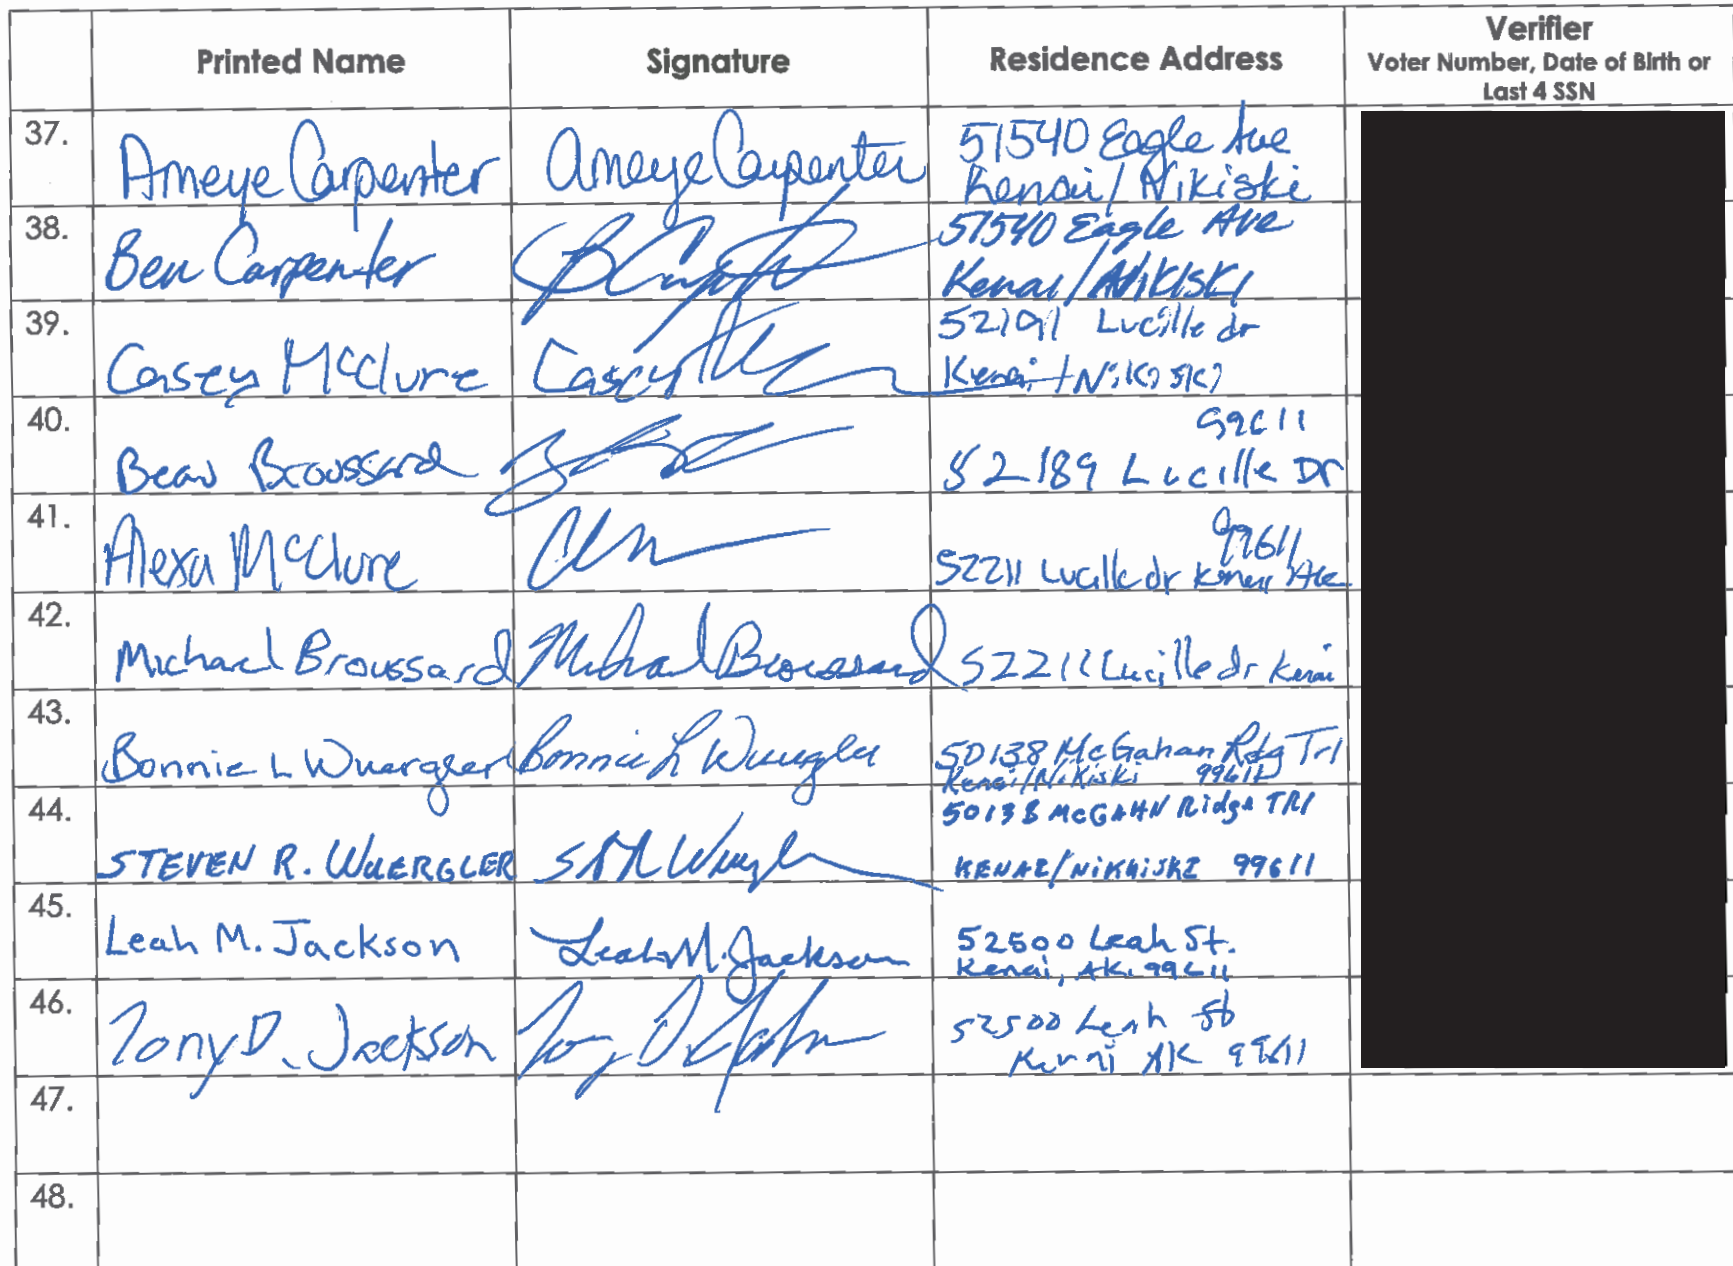 Printed Name
Signature
Residence Address
Verifier
Voter Number, Date of Birth or
Last 4 SSN
37.
Ameye Carpenter
Ameye Carpenter
51540 Eagle Ave
Kenai/Nikiski
38.
Ben Carpenter
51540 Eagle Ave
Kenai/Nikiski
39.
Casey McClure
Casey
52191 Lucille dr
Kenai/Nikiski
40.
Beau Broussard
99611
52189 Lucille Dr
41.
Alexa McClure
99611
52211 Lucille dr Kenai
42.
Michael Broussard
Michael Broussard
52211 Lucille dr Kenai
43.
Bonnie L Wuergler
Bonnie L Wuergler
50138 McGahan Rdg Trl
Kenai/Nikiski 99611
44.
STEVEN R. WUERGLER
50138 McGAHN Ridge TRl
KENAI/NiKhiSKI 99611
45.
Leah M. Jackson
Leah M. Jackson
52500 Leah St.
Kenai, AK. 99611
46.
Tony D. Jackson
52500 Leah St
Kenai AK 99611
47.
48.